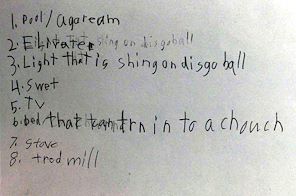 1. pool / agaream
2. Elivater
3. Light that is shing on disgo ball
4. Swet
5. TV
6. bed that can trn in to a chouch
7. Stove
8. trod mill